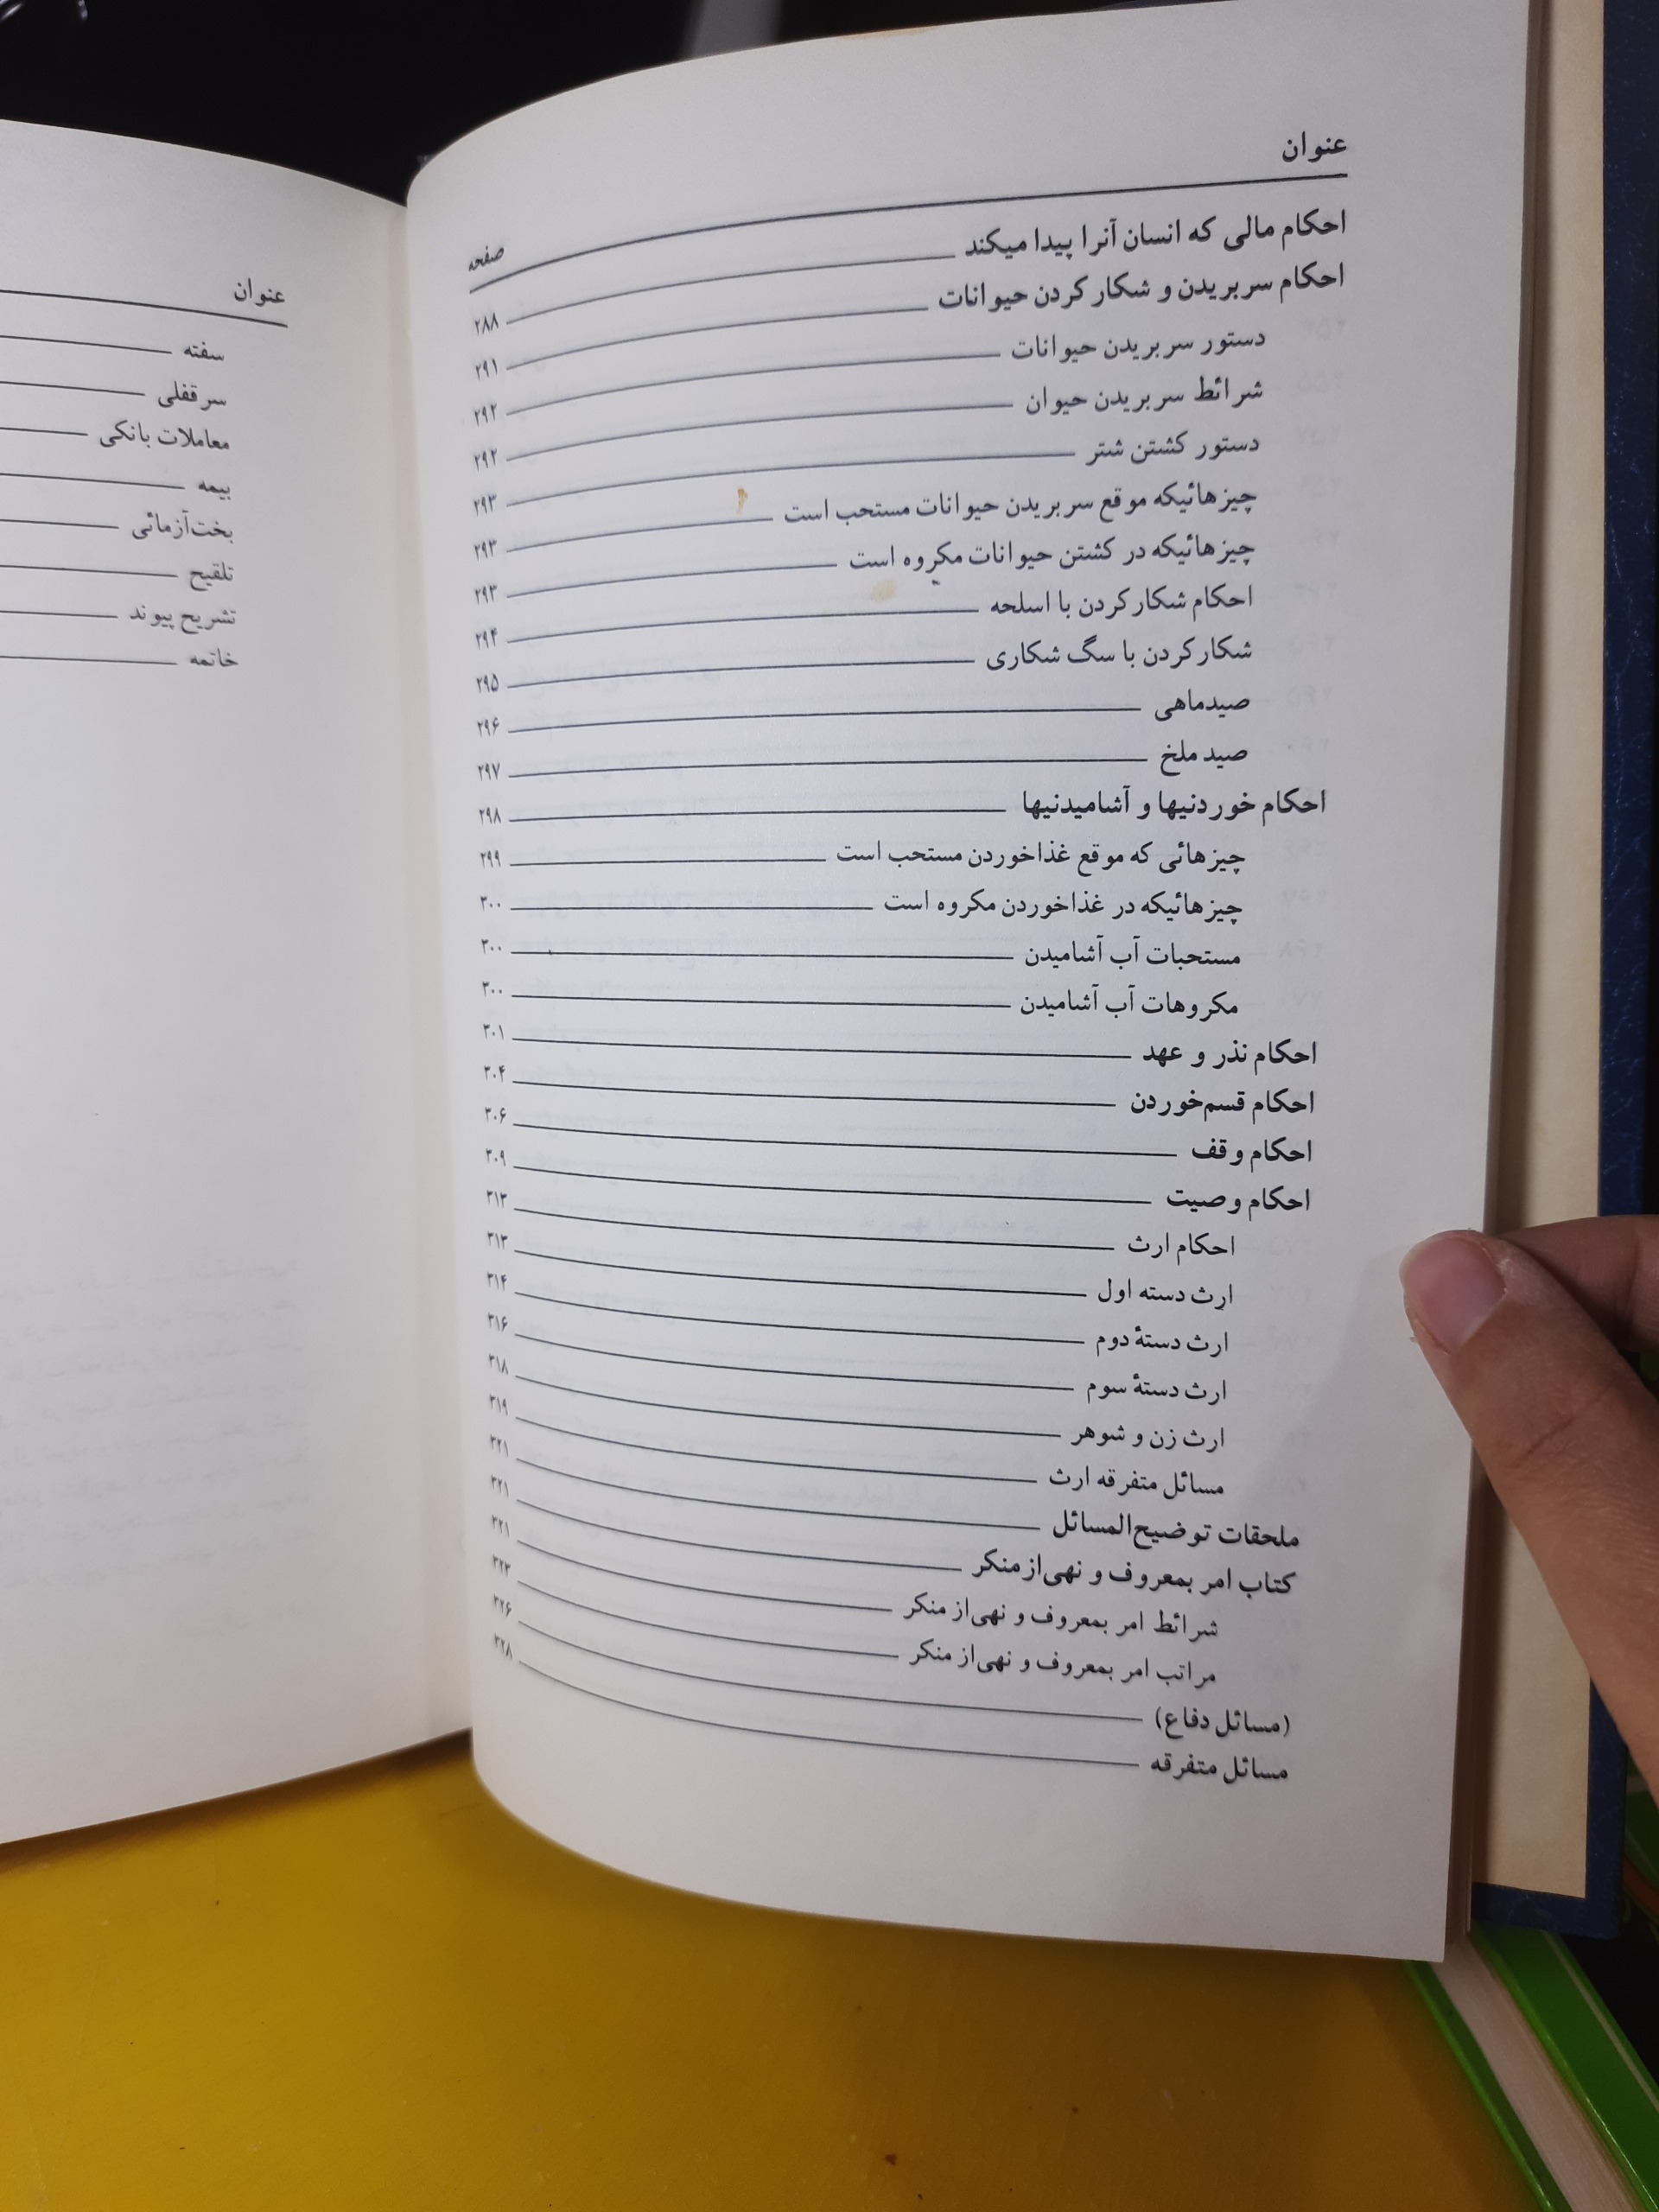 عنوان صفحه
احکام مالی که انسان آنرا پیدا میکند ۲۸۸
احکام سربریدن و شکار کردن حیوانات ۲۹۱
دستور سربریدن حیوانات ۲۹۲
شرائط سربریدن حیوان ۲۹۲
دستور کشتن شتر ۲۹۳
چیزهائیکه موقع سربریدن حیوانات مستحب است ۲۹۳
چیزهائیکه در کشتن حیوانات مکروه است ۲۹۳
احکام شکارکردن با اسلحه ۲۹۴
شکارکردن با سگ شکاری ۲۹۵
صیدماهی ۲۹۶
صید ملخ ۲۹۷
احکام خوردنیها و آشامیدنیها ۲۹۸
چیزهائی که موقع غذاخوردن مستحب است ۲۹۹
چیزهائیکه در غذاخوردن مکروه است ۳۰۰
مستحبات آب آشامیدن ۳۰۰
مکروهات آب آشامیدن ۳۰۰
احکام نذر و عهد ۳۰۱
احکام قسم‌خوردن ۳۰۴
احکام وقف ۳۰۶
احکام وصیت ۳۰۹
احکام ارث ۳۱۳
ارث دسته اول ۳۱۳
ارث دستهٔ دوم ۳۱۴
ارث دستهٔ سوم ۳۱۶
ارث زن و شوهر ۳۱۸
مسائل متفرقه ارث ۳۱۹
ملحقات توضیح‌المسائل ۳۲۱
کتاب امر بمعروف و نهی‌ازمنکر ۳۲۱
شرائط امر بمعروف و نهی‌از منکر ۳۲۱
مراتب امر بمعروف و نهی‌از منکر ۳۲۳
(مسائل دفاع) ۳۲۶
مسائل متفرقه ۳۲۸
عنوان
سفته
سرقفلی
معاملات بانکی
بیمه
بخت‌آزمائی
تلقیح
تشریح پیوند
خاتمه